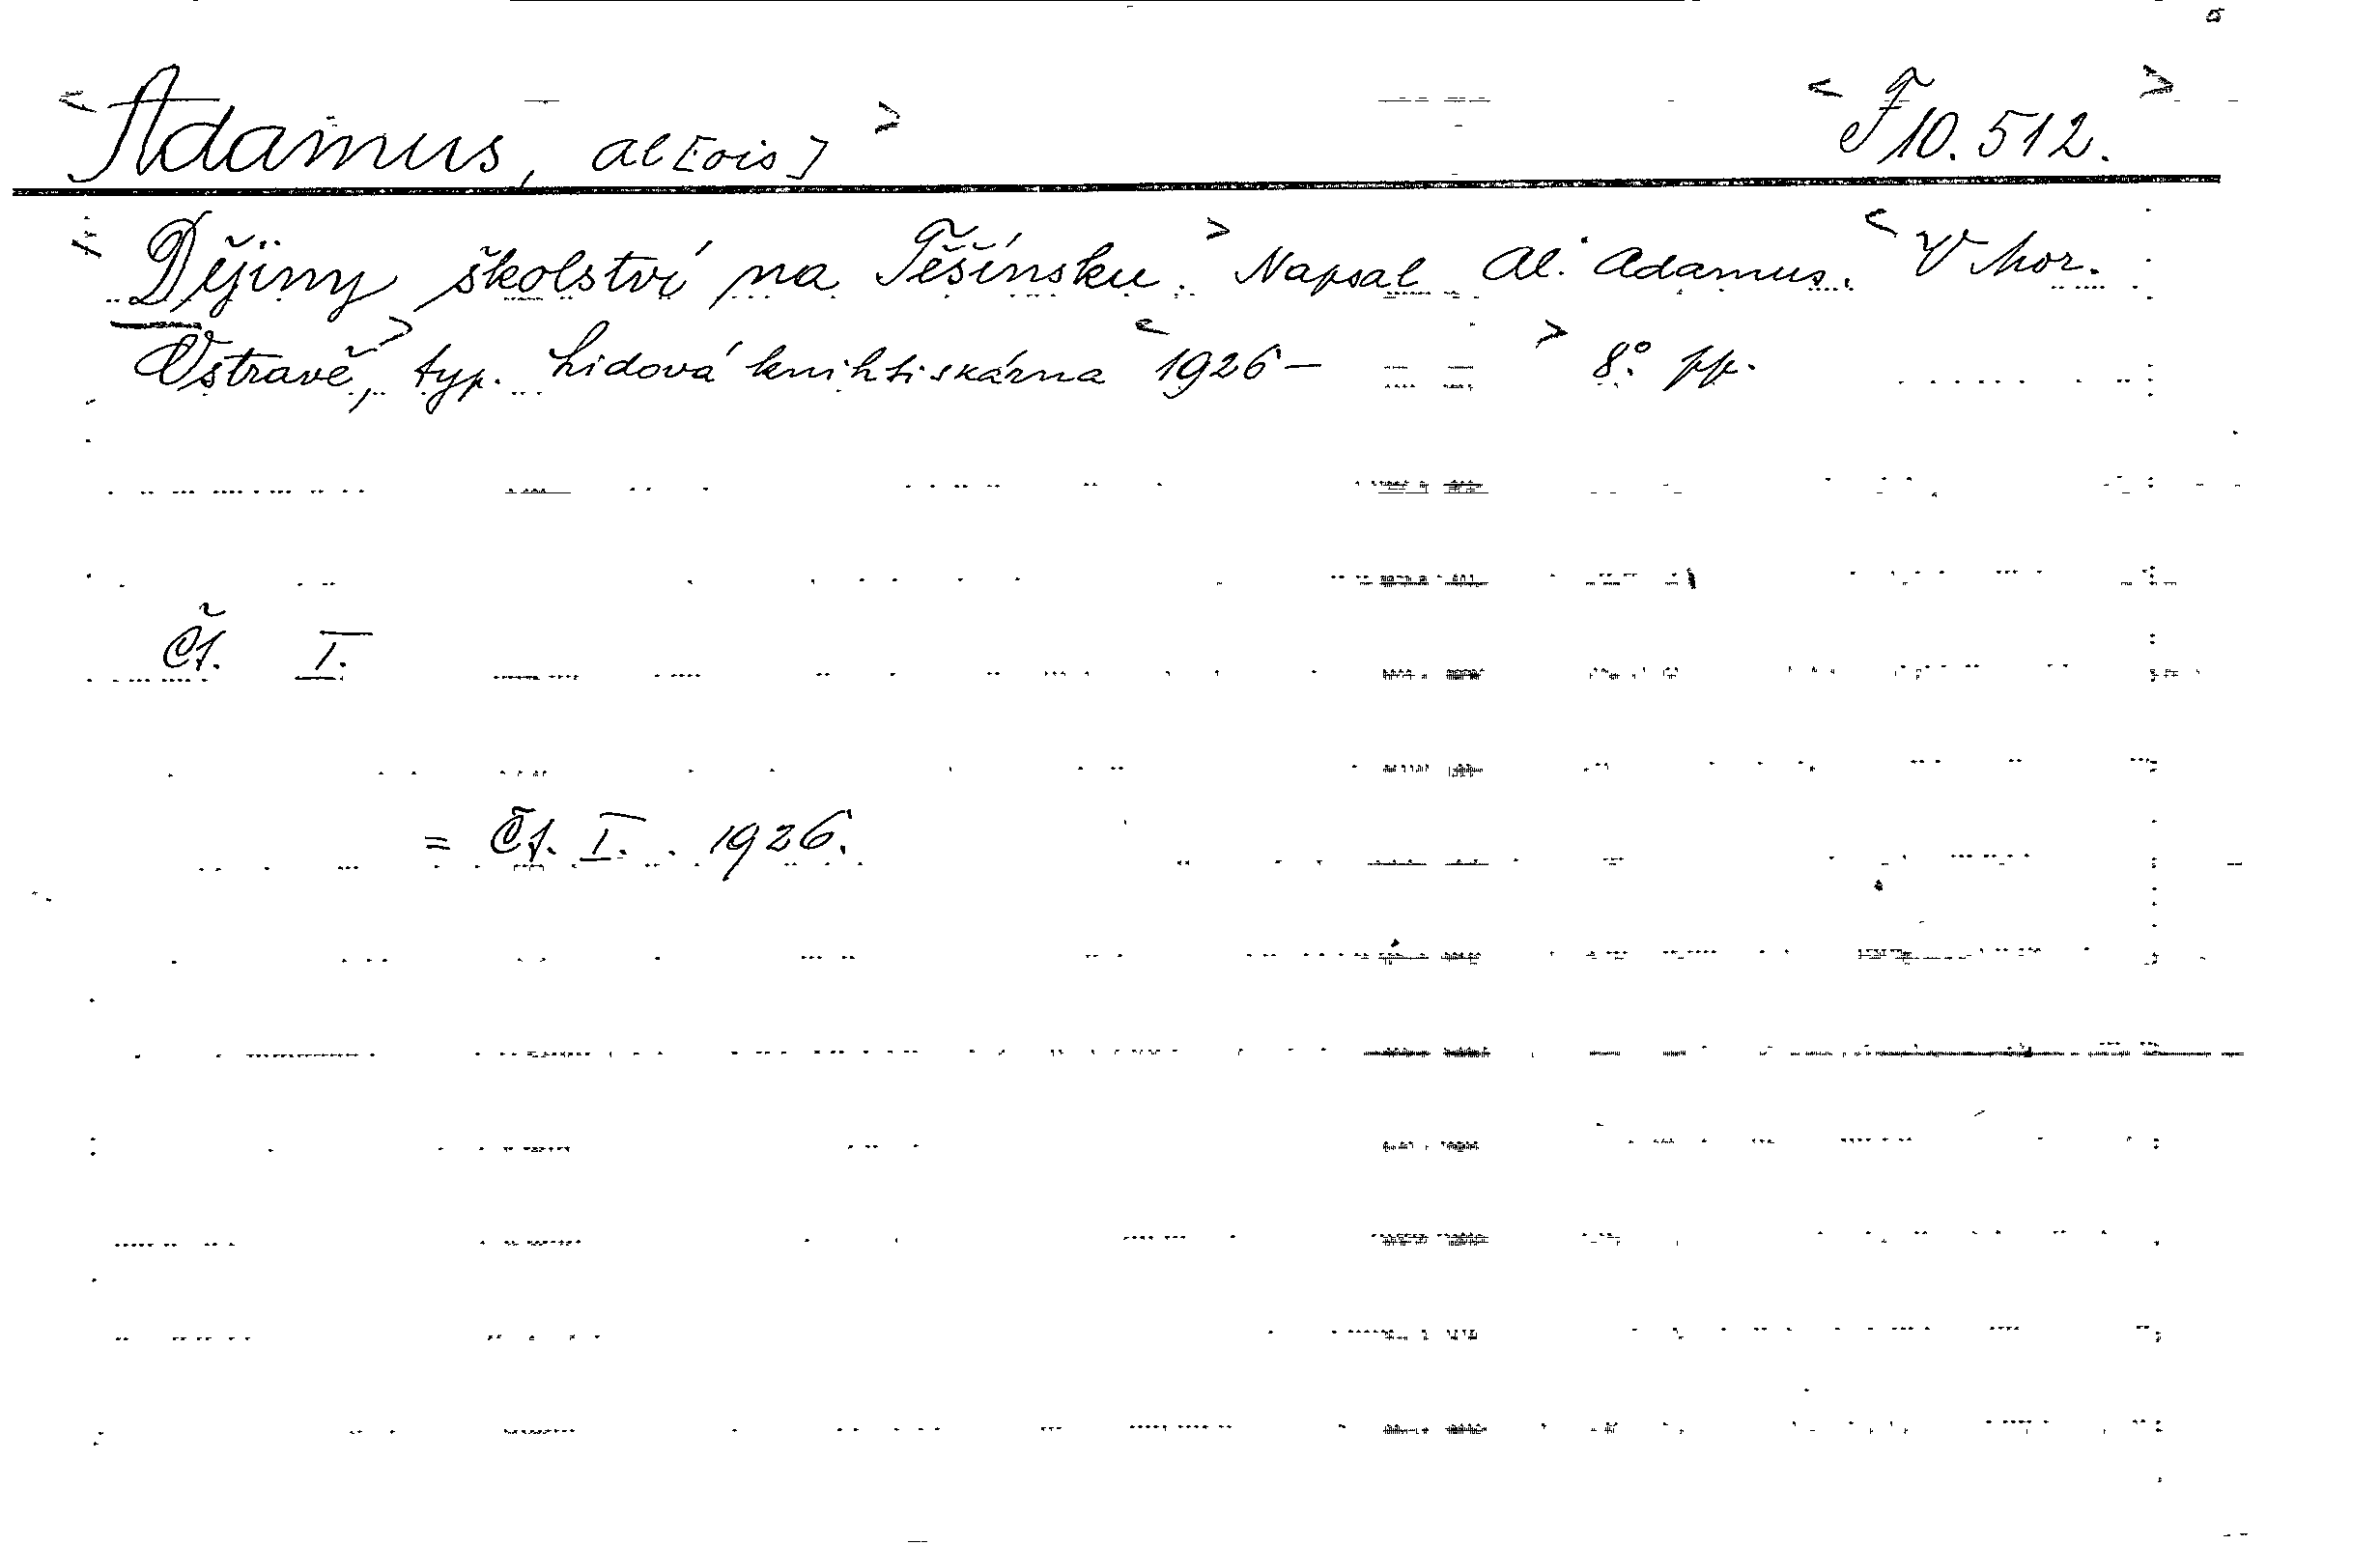 <Adamus, Al[ois]> <F 10.512.>
<Dějiny školství na Těšínsku.> Napsal Al. Adamus. <V Mor.
Ostravě,> typ. Lidová knihtiskárna <1926– > 8°. pp.
Čí. I.
= Čí. I. . 1926.